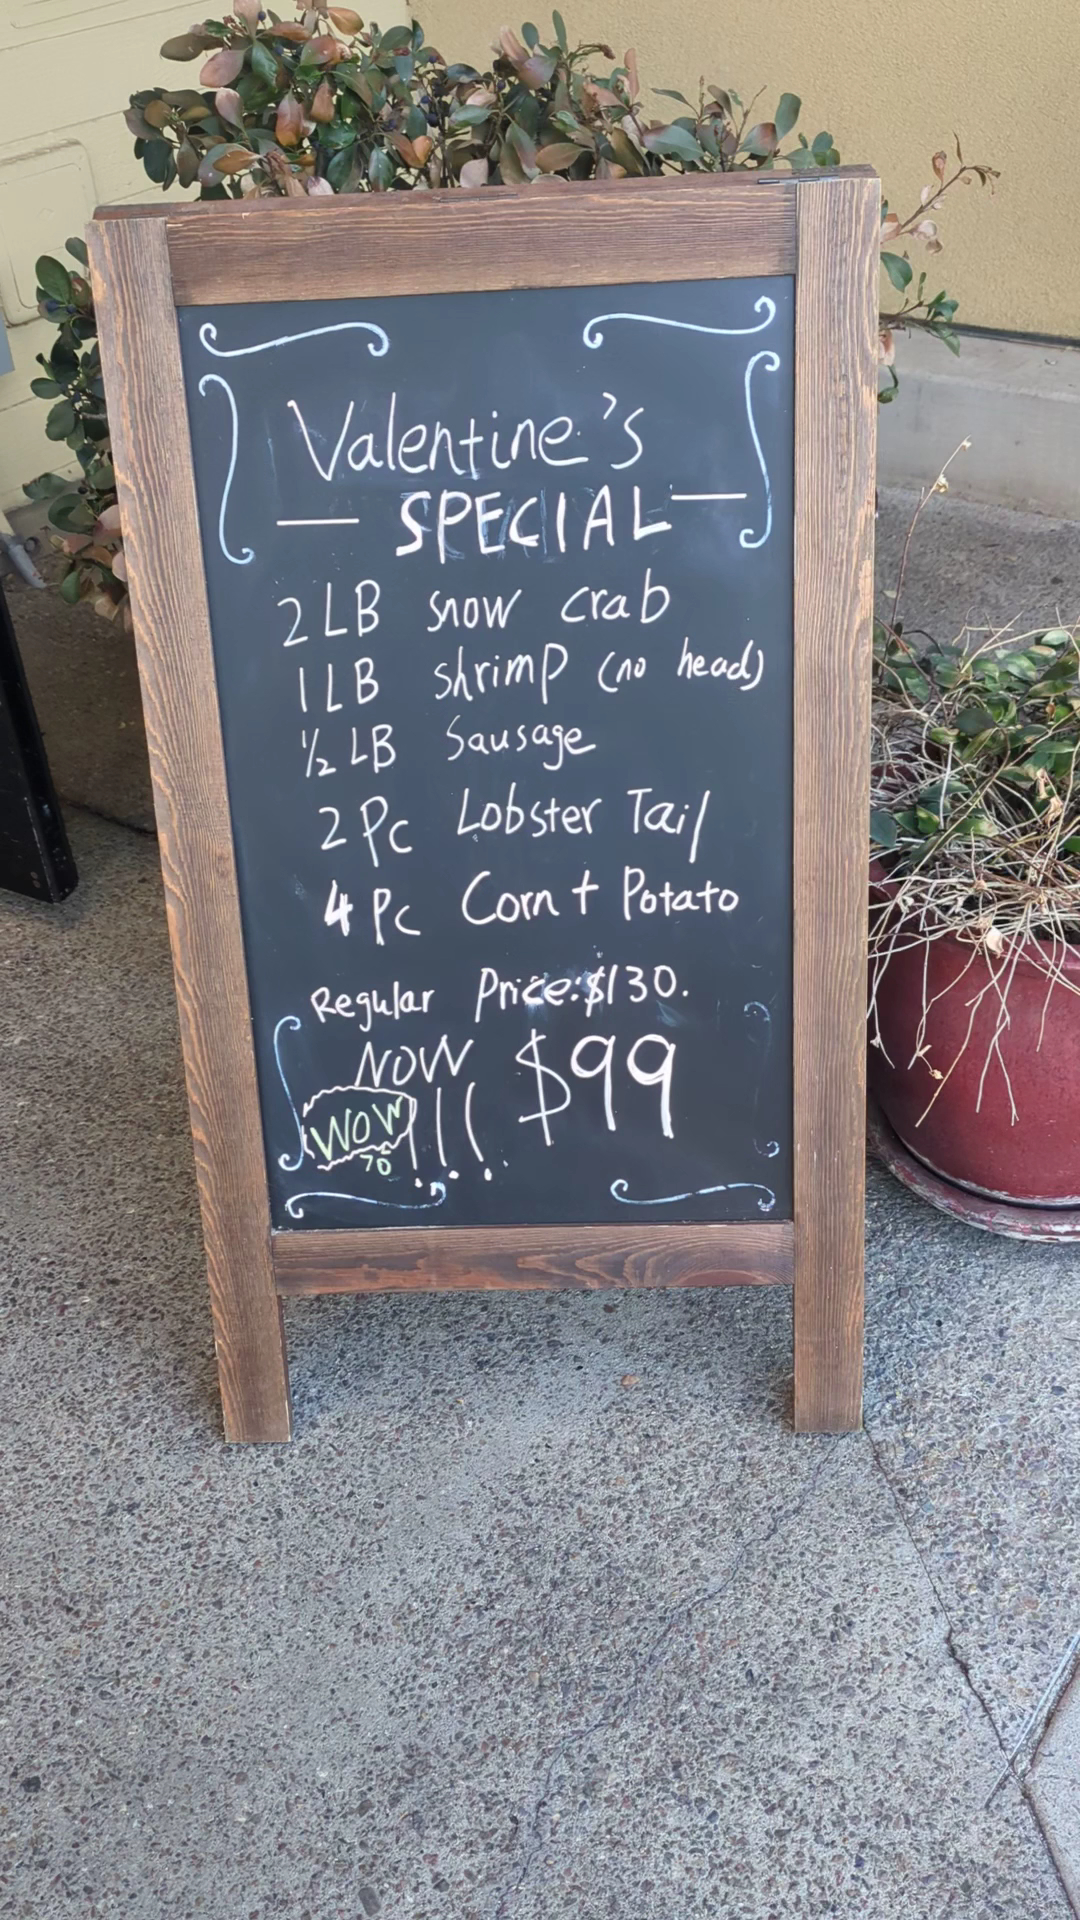 Valentine's
— SPECIAL —
2 LB snow crab
1 LB shrimp (no head)
½ LB Sausage
2 Pc Lobster Tail
4 Pc Corn + Potato
Regular Price: $130.
NOW $99
WOW !!!